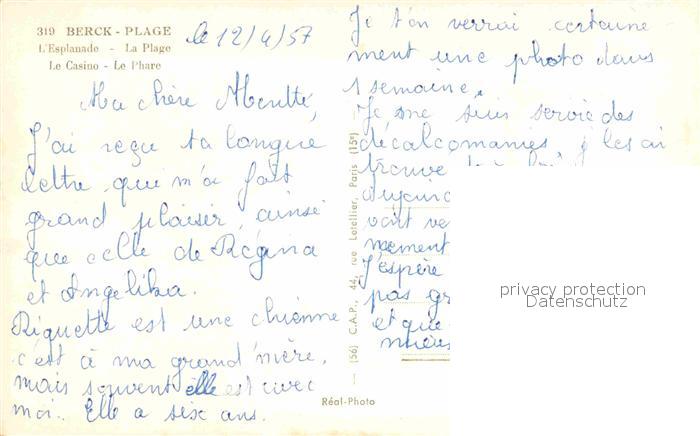 319 BERCK - PLAGE
L'Esplanade - La Plage
Le Casino - Le Phare
le 12/4/57
Ma chère
J'ai reçu ta longue
lettre qui m'a fait
grand plaisir, ainsi
que celle de Régina
et Angelika.
Riquette est une chienne
c'est à ma grand'mère,
mais souvent elle est avec
moi. Elle a six ans.
Je t'en verrai certaine
ment une photo dans
1 semaine.
Je me suis servie des
décalcomanies, je les ai
trouve
aujourd
vont ve
nement
J'espère
pas gr
et que
mieux
(56) C.A.P., 44, rue Letellier, Paris (15e)
Réal-Photo
privacy protection
Datenschutz